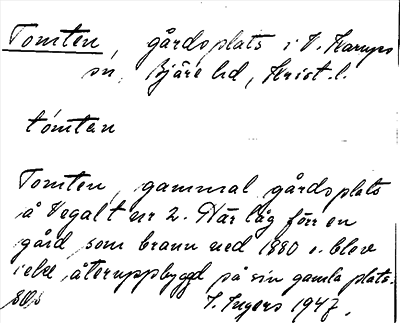 Tomten, gårdsplats i V. Karups
sn, Bjäre hd, Krist. l.
tómtan
Tomten, gammal gårdsplats
å Vegalt nr 2. Här låg förr en
gård, som brann ned 1880 o. blev
icke återuppbyggd på sin gamla plats.
I. Ingers 1947.